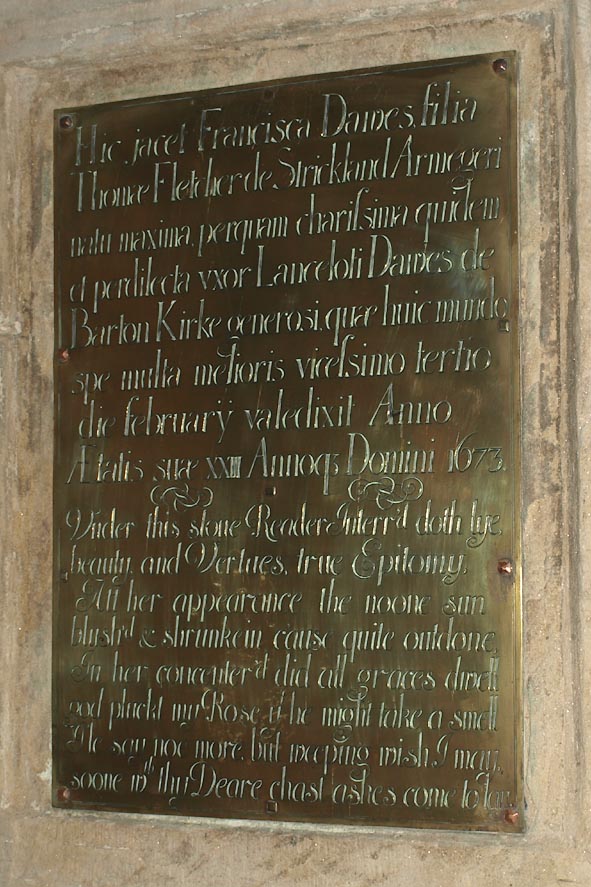 Hic jacet Francisca Dawes, filia
Thomæ Fletcher de Strickland Armegeri
natu maxima, perquam charissima quidem
et perdilecta vxor Lanceloti Dawes de
Barton Kirke generosi, quæ huic mundo,
spe multa melioris vicessimo tertio
die februarÿ valedixit Anno
Ætatis suæ xxiii Annoq; Domini 1673.
Vnder this stone Reader Interr'd doth lye,
beauty, and Vertues, true Epitomy,
Att her appearance the noone sun
blush'd & shrunke in cause quite outdone,
In her concenter'd did all graces dwell
god pluckt my Rose yt he might take a smell
I'le say noe more, but weeping wish I may,
soone wth thy Deare chast ashes come to lay.